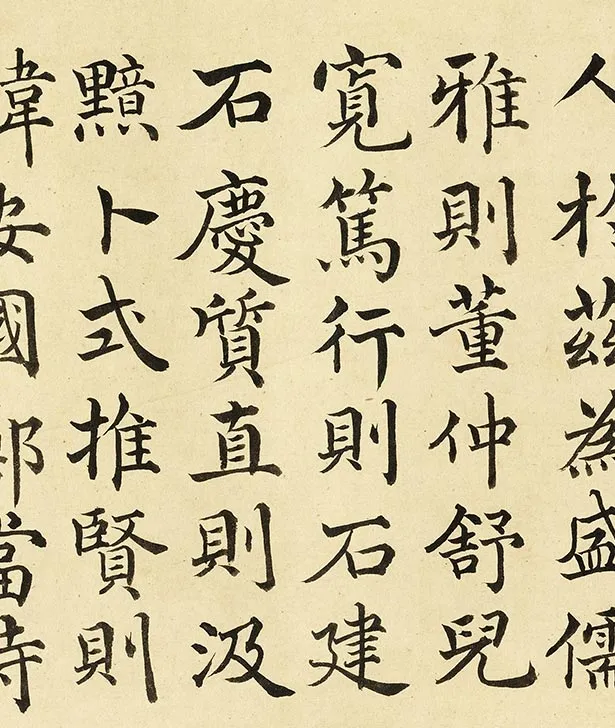 人於茲為盛儒
雅則董仲舒兒
寬篤行則石建
石慶質直則汲
黯卜式推賢則
韓安國鄭當時